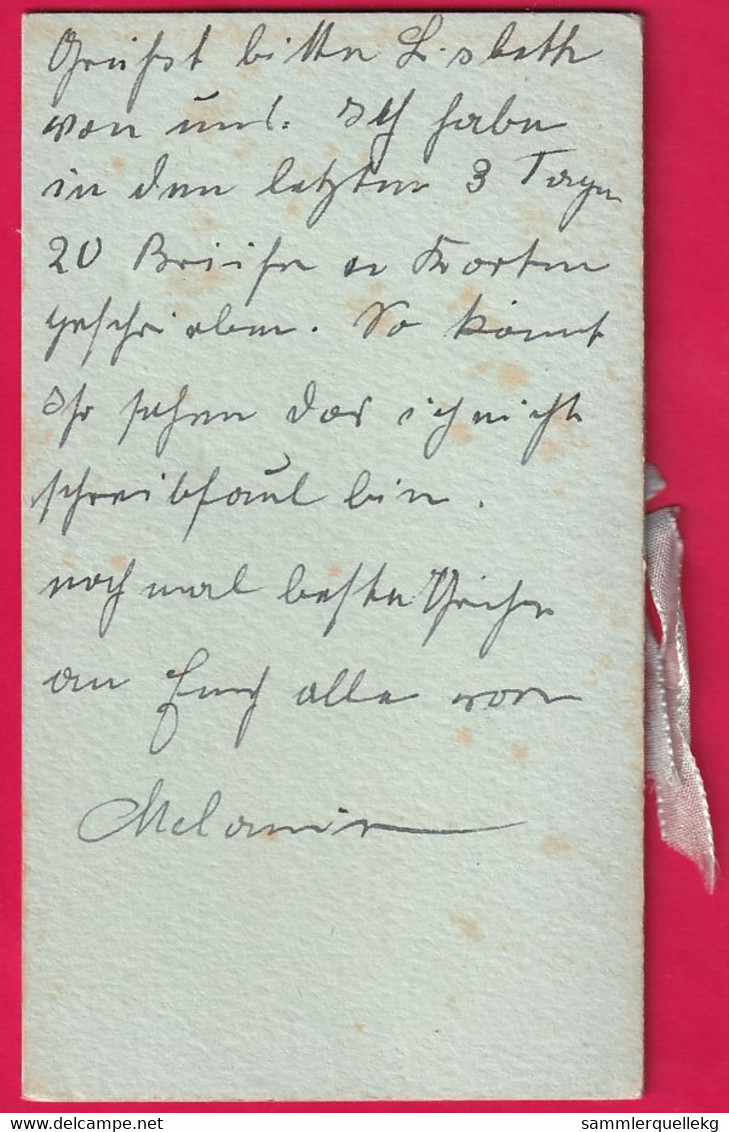 Grüßt bitte Lisbeth
von uns. Ich habe
in den letzten 3 Tagen
20 Briefe u Karten
geschrieben. So könnt
Ihr sehen das ich nicht
schreibfaul bin.
noch mal beste Grüße
an Euch alle von
Melanie
sammlerquellekg